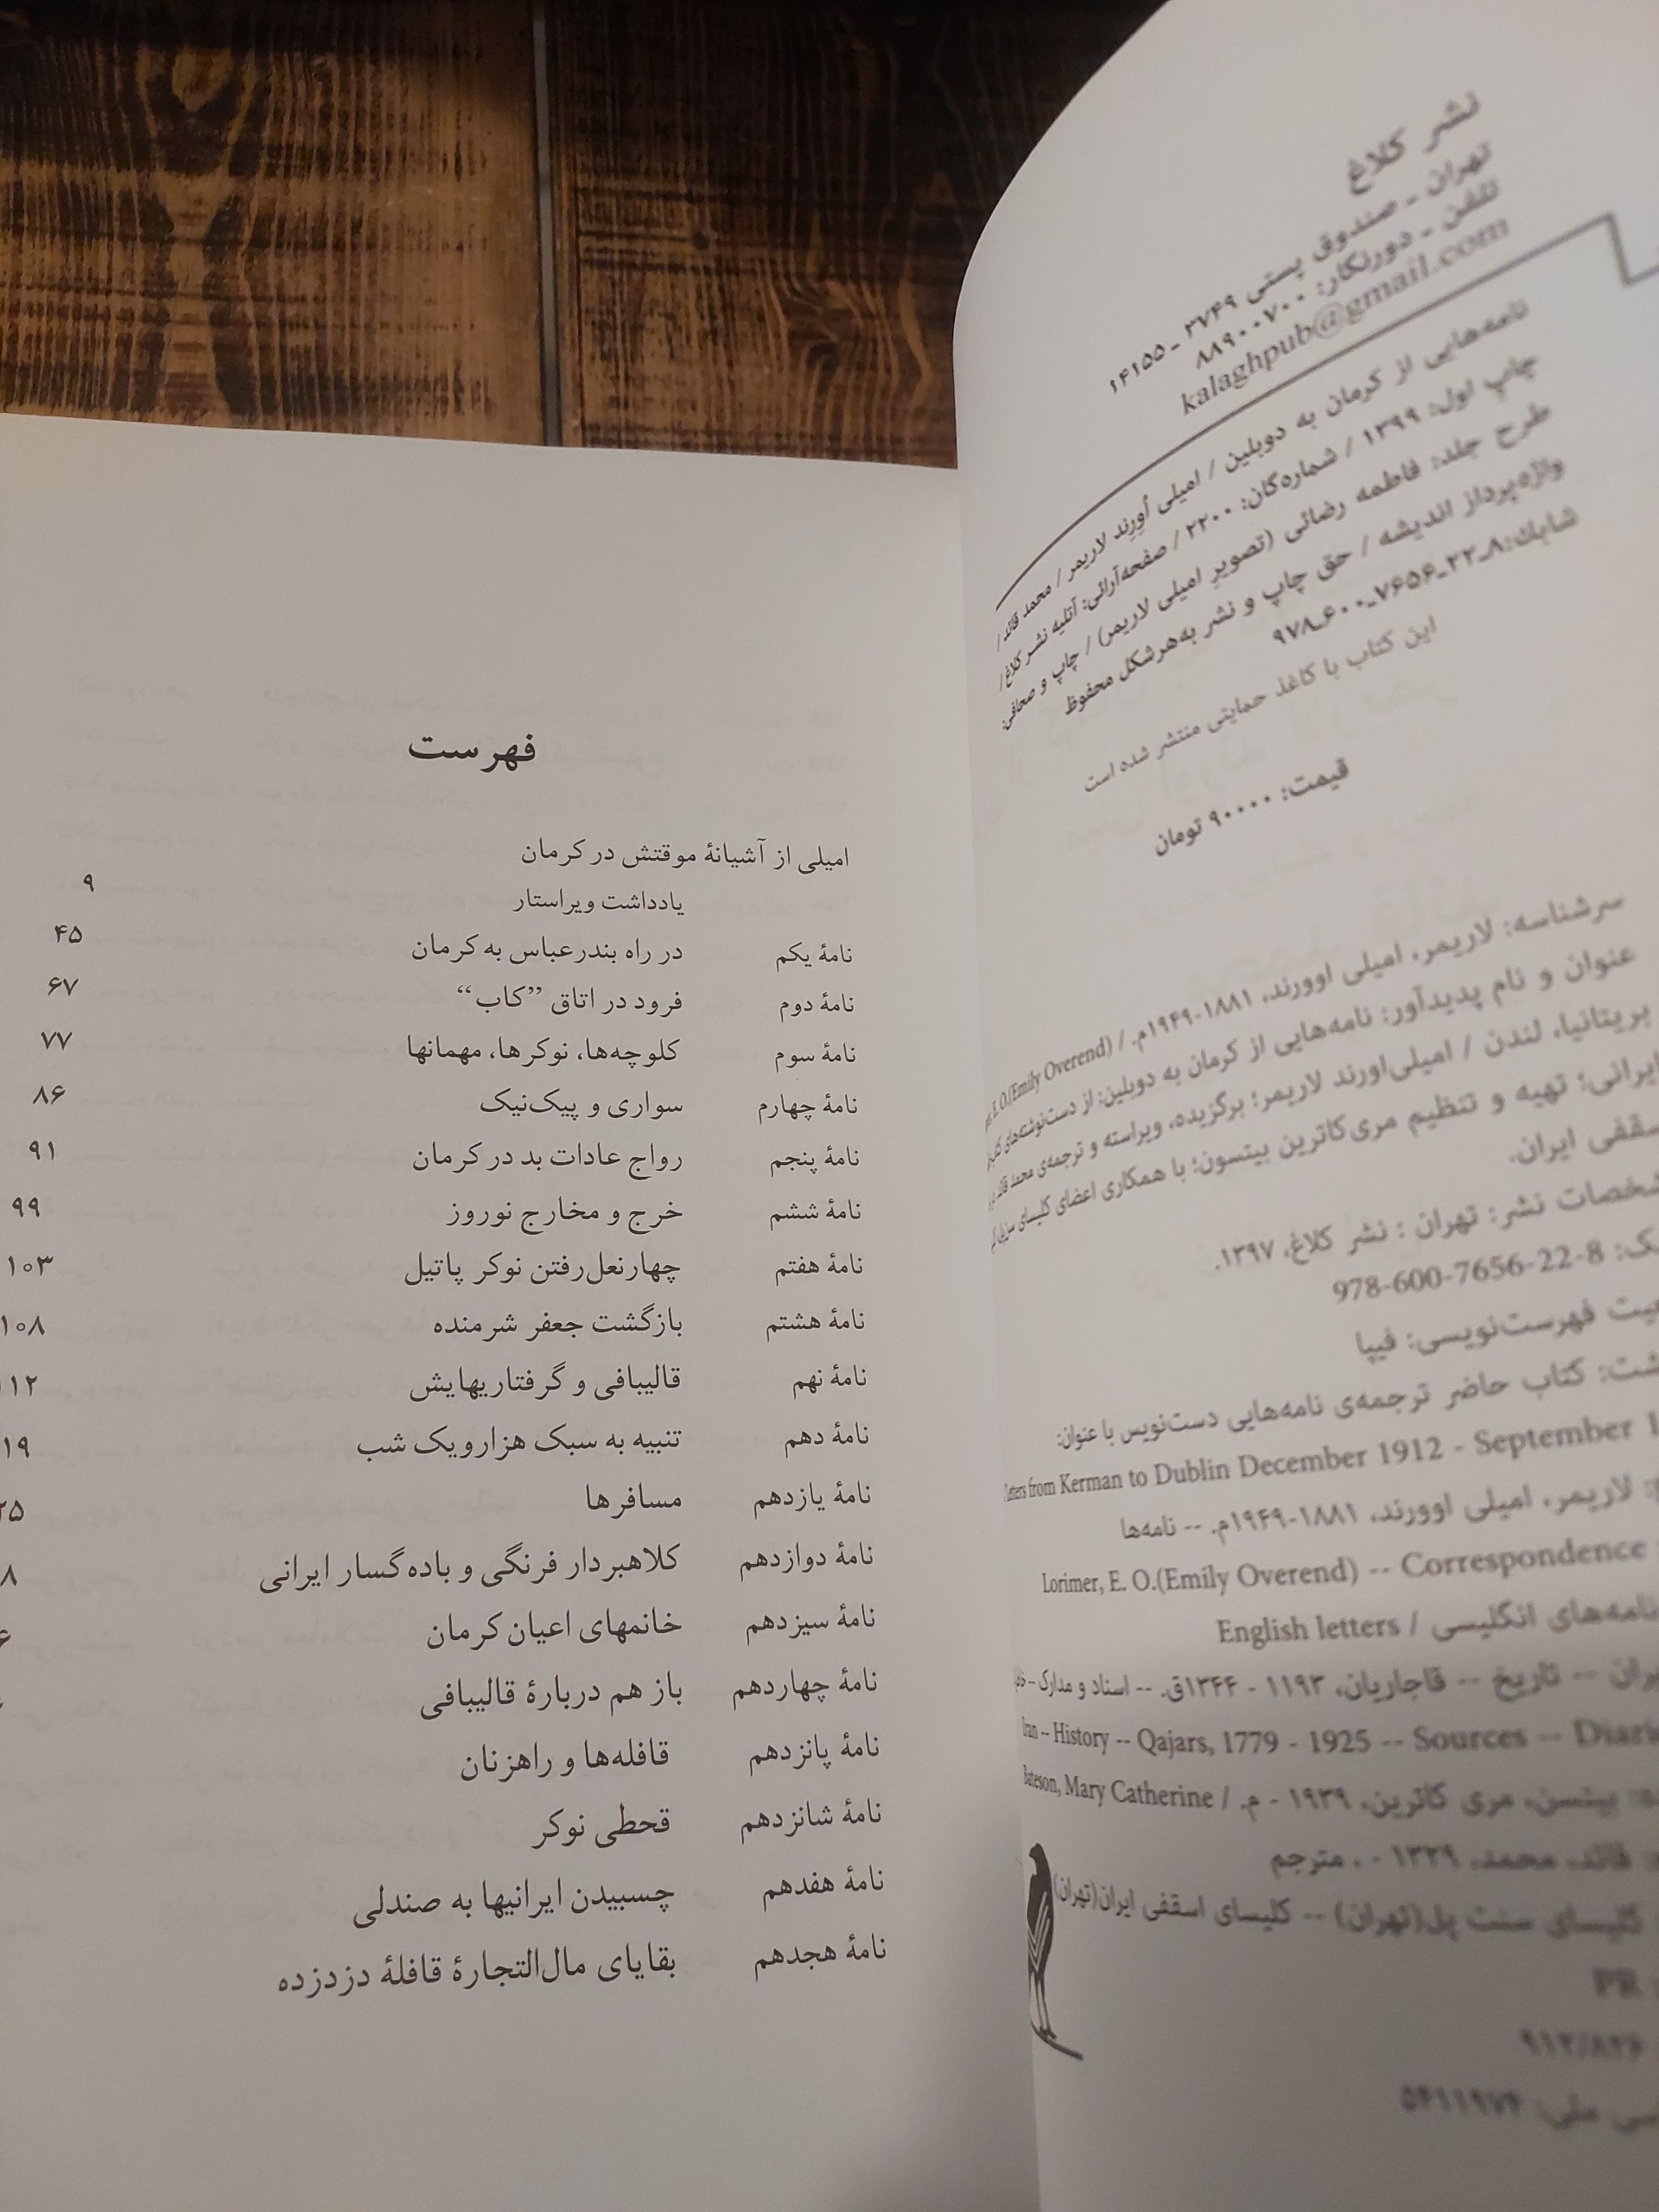 نشر کلاغ
تهران ـ صندوق پستی ۳۷۴۹ ـ ۱۴۱۵۵
تلفن ـ دورنگار: ۸۸۹۰۰۷۰۰
kalaghpub@gmail.com
نامه‌هایی از کرمان به دوبلین / امیلی اُوِرِند لاریمر / محمد قائد /
چاپ اول: ۱۳۹۹ / شماره‌گان: ۲۲۰۰ / صفحه‌آرائی: آتلیه نشر کلاغ /
طرح جلد: فاطمه رضائی (تصویرِ امیلی لاریمر) / چاپ و صحافی:
واژه‌پرداز اندیشه / حق چاپ و نشر به‌هرشکل محفوظ
شابك:۸ـ۲۲ـ۷۶۵۶ـ۶۰۰ـ۹۷۸
این کتاب با کاغذ حمایتی منتشر شده است
قیمت: ۹۰۰۰۰ تومان
سرشناسه: لاریمر، امیلی اوورند، ۱۸۸۱-۱۹۴۹م. / E. O.(Emily Overend)
عنوان و نام پدیدآور: نامه‌هایی از کرمان به دوبلین: از دست‌نوشته‌های
بریتانیا، لندن / امیلی‌اورند لاریمر؛ برگزیده، ویراسته و ترجمه‌ی محمد قائد
ایرانی؛ تهیه و تنظیم مری‌کاترین بیتسون؛ با همکاری اعضای کلیسای
سقفی ایران.
شخصات نشر: تهران : نشر کلاغ، ۱۳۹۷.
ک: 978-600-7656-22-8
یت فهرست‌نویسی: فیپا
شت: کتاب حاضر ترجمه‌ی نامه‌هایی دست‌نویس با عنوان:
from Kerman to Dublin December 1912 - September 1
لاریمر، امیلی اوورند، ۱۸۸۱-۱۹۴۹م. -- نامه‌ها
Lorimer, E. O.(Emily Overend) -- Correspondence
نامه‌های انگلیسی / English letters
ران -- تاریخ -- قاجاریان، ۱۱۹۳ - ۱۳۴۴ق. -- اسناد و مدارک --
Iran -- History -- Qajars, 1779 - 1925 -- Sources -- Diari
بیتسن، مری کاترین، ۱۹۳۹ - م. / Bateson, Mary Catherine
قائد، محمد، ۱۳۲۹ - . مترجم
کلیسای سنت پل(تهران) -- کلیسای اسقفی ایران(تهران)
PR
۹۱۲/۸۲۶
ملی: ۵۴۱۱۹۷۴
فهرست
امیلی از آشیانهٔ موقتش در کرمان
یادداشت ویراستار ۹
نامهٔ یکم در راه بندرعباس به کرمان ۴۵
نامهٔ دوم فرود در اتاق ”کاب“ ۶۷
نامهٔ سوم کلوچه‌ها، نوکرها، مهمانها ۷۷
نامهٔ چهارم سواری و پیک‌نیک ۸۶
نامهٔ پنجم رواج عادات بد در کرمان ۹۱
نامهٔ ششم خرج و مخارج نوروز ۹۹
نامهٔ هفتم چهارنعل‌رفتن نوکر پاتیل ۱۰۳
نامهٔ هشتم بازگشت جعفر شرمنده ۱۰۸
نامهٔ نهم قالیبافی و گرفتاریهایش ۱۱۲
نامهٔ دهم تنبیه به سبک هزارویک شب ۱۹
نامهٔ یازدهم مسافرها ۲۵
نامهٔ دوازدهم کلاهبردار فرنگی و باده‌گسار ایرانی ۸
نامهٔ سیزدهم خانمهای اعیان کرمان ۶
نامهٔ چهاردهم باز هم دربارهٔ قالیبافی
نامهٔ پانزدهم قافله‌ها و راهزنان
نامهٔ شانزدهم قحطی نوکر
نامهٔ هفدهم چسبیدن ایرانیها به صندلی
نامهٔ هجدهم بقایای مال‌التجارهٔ قافلهٔ دزدزده